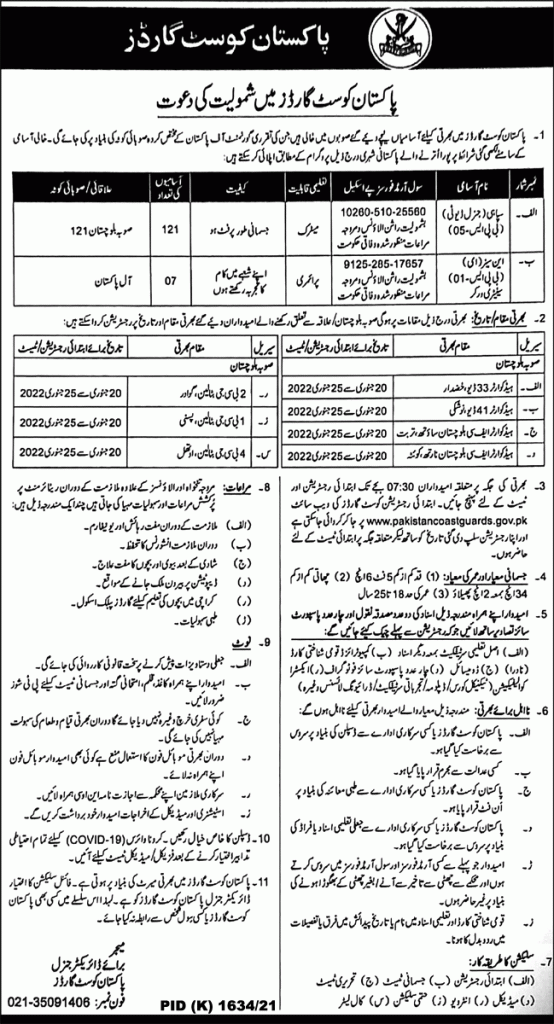 پاکستان کوسٹ گارڈز
پاکستان کوسٹ گارڈز میں شمولیت کی دعوت
1- پاکستان کوسٹ گارڈز میں بھرتی کیلئے آسامیاں نیچے دیے گئے صوبوں میں خالی ہیں جن کی تقرری گورنمنٹ آف پاکستان کے مختص کردہ صوبائی کوٹہ کی بنیاد پر کی جائے گی۔ خالی آسامی
کے سامنے لکھی گئی شرائط پر پورا اترنے والے پاکستانی شہری درج ذیل پروگرام کے مطابق اپلائی کر سکتے ہیں:
نمبر شمار | نام آسامی | سول آرمڈ فورسز پے اسکیل | تعلیمی قابلیت | کیفیت | آسامیوں کی تعداد | علاقائی/صوبائی کوٹہ
الف۔ | سپاہی (جنرل ڈیوٹی) (بی پی ایس-05) | 10260-510-25560 بشمولیت راشن الاؤنس و مروجہ مراعات منظور شدہ وفاقی حکومت | میٹرک | جسمانی طور پر فٹ ہو | 121 | صوبہ بلوچستان 121
ب۔ | این سیز (ای) (بی پی ایس-01) سینیٹری ورکر | 9125-285-17657 بشمولیت راشن الاؤنس و مروجہ مراعات منظور شدہ وفاقی حکومت | پرائمری | اپنے شعبے میں کام کا تجربہ رکھتے ہوں | 07 | آل پاکستان
2- بھرتی مقام/تاریخ: بھرتی درج ذیل مقامات پر ہوگی صوبہ بلوچستان/علاقہ سے تعلق رکھنے والے امیدواران دیے گئے بھرتی مقام اور تاریخ پر رجسٹریشن کروا سکتے ہیں:
سیریل | مقام بھرتی | تاریخ برائے ابتدائی رجسٹریشن/ٹیسٹ
صوبہ بلوچستان
الف۔ | ہیڈکوارٹر 33 ڈیو، خضدار | 20 جنوری سے 25 جنوری 2022
ب۔ | ہیڈکوارٹر 41 ڈیو، نوشکی | 20 جنوری سے 25 جنوری 2022
ج۔ | ہیڈکوارٹر ایف سی بلوچستان ساؤتھ، تربت | 20 جنوری سے 25 جنوری 2022
د۔ | ہیڈکوارٹر ایف سی بلوچستان نارتھ، کوئٹہ | 20 جنوری سے 25 جنوری 2022
سیریل | مقام بھرتی | تاریخ برائے ابتدائی رجسٹریشن/ٹیسٹ
صوبہ بلوچستان
ر۔ | 2 پی سی جی بٹالین، گوادر | 20 جنوری سے 25 جنوری 2022
ز۔ | 1 پی سی جی بٹالین، پسنی | 20 جنوری سے 25 جنوری 2022
س۔ | 4 پی سی جی بٹالین، اوتھل | 20 جنوری سے 25 جنوری 2022
3- بھرتی کی جگہ پر متعلقہ امیدواران 07:30 بجے تک ابتدائی رجسٹریشن اور
ٹیسٹ کے لئے پہنچ جائیں۔ ابتدائی رجسٹریشن کوسٹ گارڈز کی ویب سائٹ
www.pakistancoastguards.gov.pk پر جا کر کروائی جا سکتی ہے
اور اپنا رجسٹریشن سلپ دی گئی تاریخ کو ساتھ لیکر متعلقہ جگہ پر ابتدائی ٹیسٹ کے لئے
حاضر ہوں۔
4- جسمانی معیار اور عمر کی معیاد: (1) قد کم از کم 5 فٹ 6 انچ (2) چھاتی کم از کم
34 انچ بمعہ 2 انچ پھیلاؤ (3) عمر کی حد 18 تا 25 سال
5- امیدوار اپنے ہمراہ مندرجہ ذیل اسناد کی دو عدد مصدقہ نقول اور چار عدد پاسپورٹ
سائز تصاویر ساتھ لائیں جو کہ رجسٹریشن سے پہلے چیک کیئے جائیں گے:
الف۔ اصل تعلیمی سرٹیفکیٹ بمعہ دیگر اسناد (ب) کمپیوٹرائزڈ قومی شناختی کارڈ
(نادرا) (ج) ڈومیسائل (د) چار عدد پاسپورٹ سائز فوٹو گراف (ر) ایکسٹرا
کوالیفکیشن (ٹیکنیکل کورس/ڈپلومہ/تجرباتی سرٹیفکیٹ/ڈرائیونگ لائسنس وغیرہ)
6- نااہل برائے بھرتی: مندرجہ ذیل معیار والے امیدوار بھرتی کیلئے نااہل ہوں گے:
الف۔ پاکستان کوسٹ گارڈز یا کسی سرکاری ادارے سے ڈسپلن کی بنیاد پر سروس
سے برخاست کیا گیا ہو۔
ب۔ کسی عدالت سے مجرم قرار پایا گیا ہو۔
ج۔ پاکستان کوسٹ گارڈز یا کسی سرکاری ادارے سے طبی معائنہ کی بنیاد پر
ان فٹ قرار پایا ہو۔
د۔ پاکستان کوسٹ گارڈز یا کسی سرکاری ادارے سے جعلی تعلیمی اسناد یا فراڈ کی
بنیاد پر سروس سے برخاست کیا گیا ہو۔
ڑ۔ امیدوار جو پہلے سے کسی آرمڈ فورسز اور سول آرمڈ فورسز میں سروس کرتے
ہوں اور محکمے سے چھٹی سے تاخیر سے آنے/بغیر چھٹی کے بھگوڑے ہونے کی
بنیاد پر غیر حاضر ہوں۔
ز۔ قومی شناختی کارڈ اور تعلیمی اسناد میں نام یا تاریخ پیدائش میں فرق یا تفصیلات
میں ردوبدل کا ہونا۔
7- سلیکشن کا طریقہ کار:
(الف) ابتدائی رجسٹریشن (ب) جسمانی ٹیسٹ (ج) تحریری ٹیسٹ
(د) میڈیکل (ر) انٹرویو (ز) حتمی سلیکشن (س) کال لیٹر
8- مراعات: مروجہ تنخواہ اور الاؤنسز کے علاوہ ملازمت کے دوران ریٹائرمنٹ پر
پرکشش مراعات اور سہولیات مہیا کی جاتی ہیں چند ایک مندرجہ ذیل ہیں:
(الف) ملازمت کے دوران مفت رہائش اور یونیفارم۔
(ب) دوران ملازمت انشورنس کا تحفظ۔
(ج) شادی کے بعد بیوی اور بچوں کا مفت علاج۔
(د) ڈیپوٹیشن پر بیرون ملک جانے کے مواقع۔
(ر) کراچی میں بچوں کی تعلیم کیلئے گارڈز پبلک اسکول۔
(ز) طبی سہولیات۔
9- نوٹ
الف۔ جعلی دستاویزات پیش کرنے پر سخت قانونی کارروائی کی جائے گی۔
ب۔ امیدوار اپنے ہمراہ کاغذ قلم، امتحانی گتہ اور جسمانی ٹیسٹ کیلئے پی ٹی شوز
ضرور لائیں۔
ج۔ کوئی سفری خرچ وغیرہ نہیں دیا جائے گا دوران بھرتی قیام و طعام کی سہولت
مہیا نہیں کی جائے گی۔
د۔ دوران بھرتی موبائل فون کا استعمال منع ہے کوئی بھی امیدوار موبائل فون
اپنے ہمراہ نہ لائے۔
ر۔ سرکاری ملازمین اپنے محکمہ سے اجازت نامہ این او سی ہمراہ لائیں۔
ز۔ اسٹیشنری اور میڈیکل کے اخراجات امیدوار خود برداشت کریں گے۔
10- ڈسپلن کا خاص خیال رکھیں۔ کرونا وائرس (COVID-19) کیلئے تمام احتیاطی
تدابیر اختیار کرنے کے بعد فزیکل/میڈیکل ٹیسٹ کیلئے آئیں۔
11- پاکستان کوسٹ گارڈز میں بھرتی میرٹ کی بنیاد پر ہوتی ہے۔ فائنل سلیکشن کا اختیار
ڈائریکٹر جنرل پاکستان کوسٹ گارڈز کو ہے۔ لہذا اس سلسلے میں کسی بھی پاکستان
کوسٹ گارڈز یا کسی سول شخص سے رابطہ نہ کیا جائے۔
میجر
برائے ڈائریکٹر جنرل
پاکستان کوسٹ گارڈز
فون نمبر: 021-35091406
PID (K) 1634/21